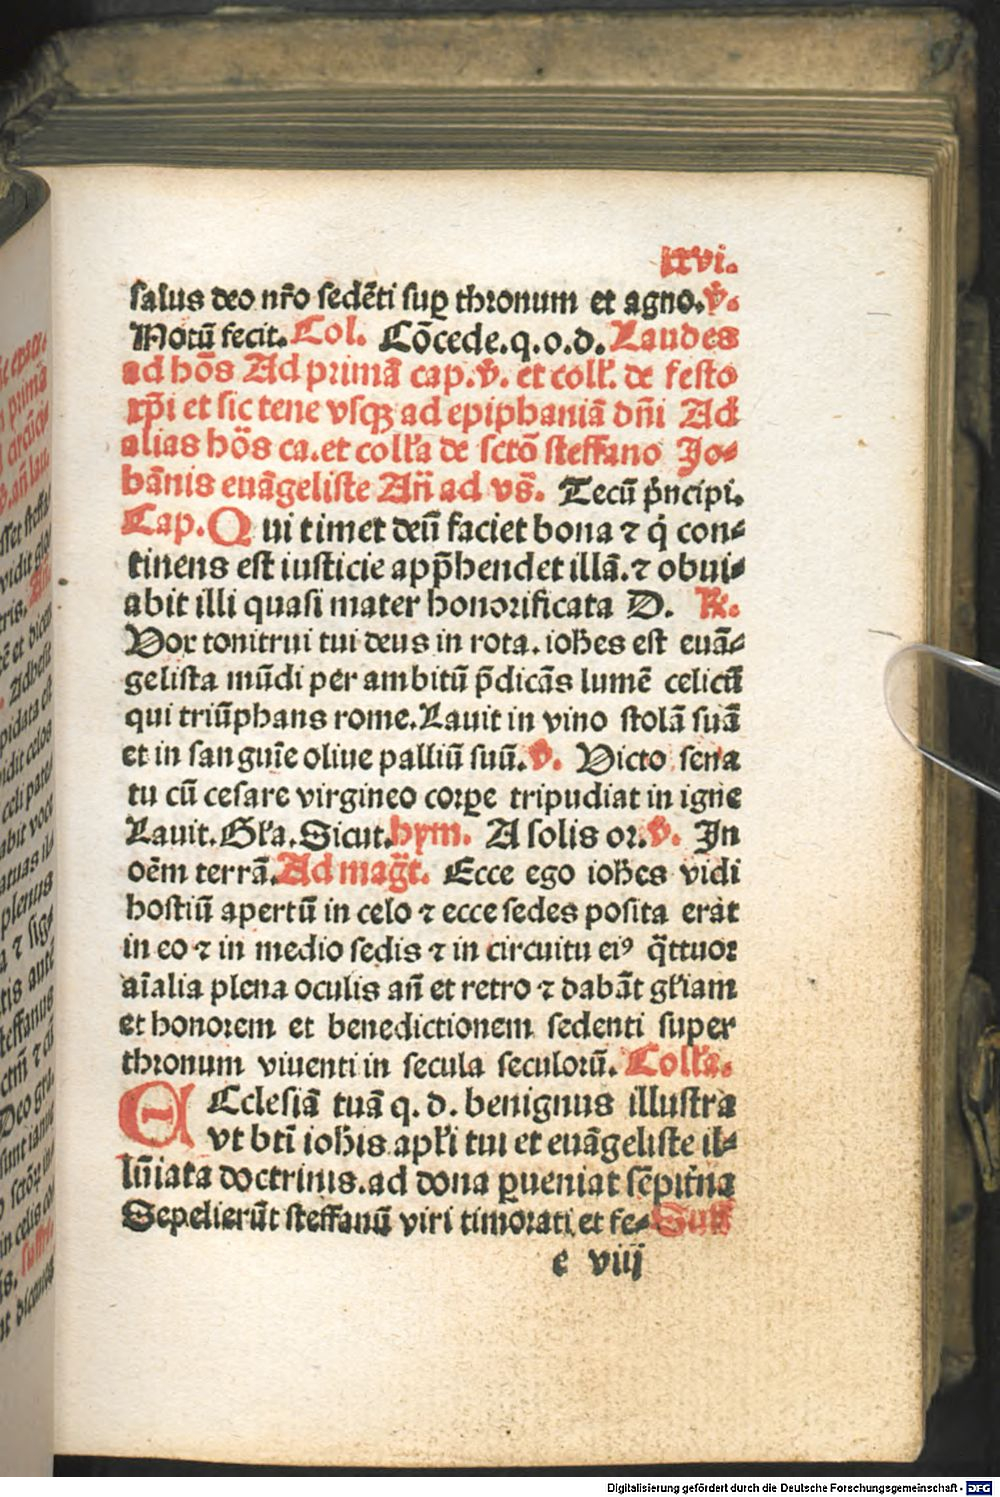 lxvi.
salus deo nr̄o sedēti suꝑ thronum et agno. v̄.
Notū fecit. Col. Cōcede.q.o.d. Laudes
ad hōs Ad primā cap. v̄. et coll'. de festo
xp̄i et sic tene vsqꝫ ad epiphaniā dn̄i Ad
alias hōs ca. et coll'a de sctō steffano Jo⸗
hānis euāgeliste An̄ ad vs̄. Tecū p̄ncipi.
Cap. Qui timet deū faciet bona ⁊ q̇ con⸗
tinens est iusticie app̄hendet illā. ⁊ obui⸗
abit illi quasi mater honorificata D. R.
Vox tonitrui tui deus in rota. ioh̄es est euā⸗
gelista mūdi per ambitū p̄dicās lumē celicū
qui triūphans rome. Lauit in vino stolā suā
et in sanguīe oliue palliū suū. v̄. Victo sena
tu cū cesare virgineo corꝑe tripudiat in igne
Lauit. Gl'a. Sicut. hym. A solis or. v̄. In
oēm terrā. Ad mag̅t. Ecce ego ioh̄es vidi
hostiū apertū in celo ⁊ ecce sedes posita erat
in eo ⁊ in medio sedis ⁊ in circuitu ei⁹ q̄ttuor
aīalia plena oculis an̄ et retro ⁊ dabāt gl'iam
et honorem et benedictionem sedenti super
thronum viuenti in secula seculorū. Coll'a.
ECclesiā tuā q. d. benignus illustra
vt btī ioh̄is apl'i tui et euāgeliste il⸗
lūiata doctrinis. ad dona ꝑueniat sēpit'na
Sepelierūt steffanū viri timorati et fe⸗ Suff
e viij
Digitalisierung gefördert durch die Deutsche Forschungsgemeinschaft - DFG